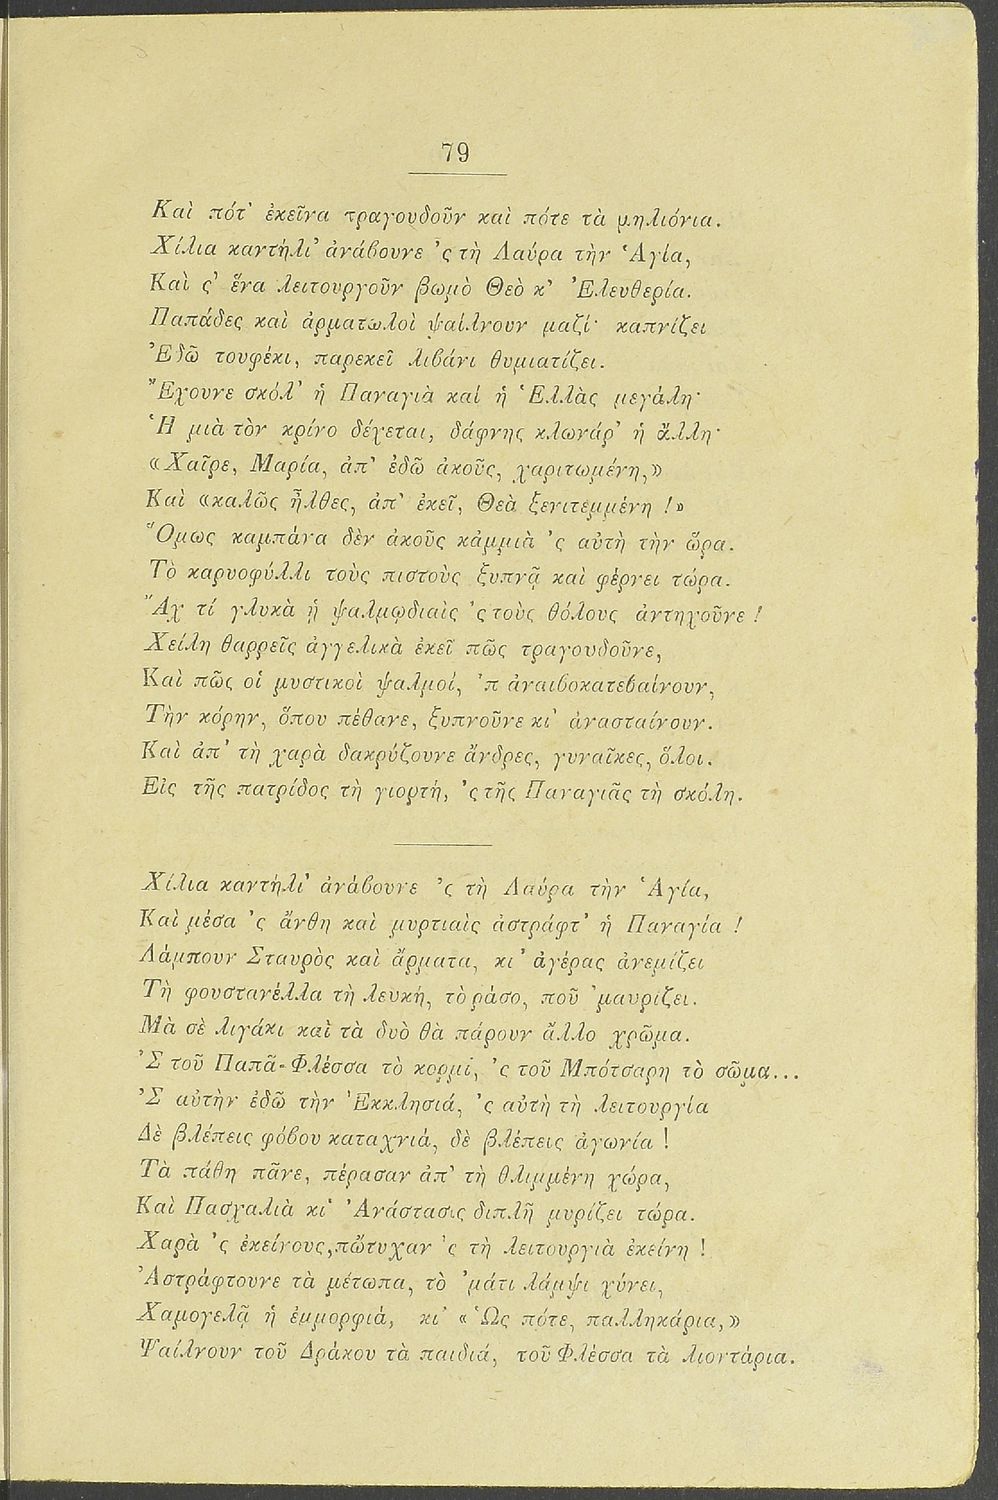 79
Καὶ πότ' ἐκεῖνα τραγουδοῦν καὶ πότε τὰ μηλιόνια.
Χίλια καντήλι' ἀνάβουνε 'ς τὴ Λαύρα τὴν Ἁγία,
Καὶ ς' ἕνα λειτουργοῦν βωμὸ Θεὸ κ' Ἐλευθερία.
Παπάδες καὶ ἀρματωλοὶ ψαίλνουν μαζί· καπνίζει
Ἐδῶ τουφέκι, παρεκεῖ λιβάνι θυμιατίζει.
Ἔχουνε σκόλ' ἡ Παναγιὰ καί ἡ Ἑλλὰς μεγάλη·
Ἡ μιὰ τὸν κρίνο δέχεται, δάφνης κλωνάρ' ἡ ἄλλη·
«Χαῖρε, Μαρία, ἀπ' ἐδῶ ἀκοῦς, χαριτωμένη,»
Καὶ «καλῶς ἦλθες, ἀπ' ἐκεῖ, Θεὰ ξενιτεμμένη !»
Ὅμως καμπάνα δὲν ἀκοῦς κἀμμιὰ 'ς αὐτὴ τὴν ὥρα.
Τὸ καρυοφύλλι τοὺς πιστοὺς ξυπνᾷ καὶ φέρνει τώρα.
Ἄχ τί γλυκὰ ἡ ψαλμῳδιαὶς 'ς τοὺς θόλους ἀντηχοῦνε !
Χείλη θαρρεῖς ἀγγελικὰ ἐκεῖ πῶς τραγουδοῦνε,
Καὶ πῶς οἱ μυστικοὶ ψαλμοί, 'π ἀναιβοκατεβαίνουν,
Τὴν κόρην, ὅπου πέθανε, ξυπνοῦνε κι' ἀνασταίνουν.
Καὶ ἀπ' τὴ χαρὰ δακρύζουνε ἄνδρες, γυναῖκες, ὅλοι.
Εἰς τῆς πατρίδος τὴ γιορτή, 'ς τῆς Παναγιᾶς τὴ σκόλη.
Χίλια καντήλι' ἀνάβουνε 'ς τὴ Λαύρα τὴν Ἁγία,
Καὶ μέσα 'ς ἄνθη καὶ μυρτιαὶς ἀστράφτ' ἡ Παναγία !
Λάμπουν Σταυρὸς καὶ ἄρματα, κι' ἀγέρας ἀνεμίζει
Τὴ φουστανέλλα τὴ λευκή, τὸ ράσο, ποῦ 'μαυρίζει.
Μὰ σὲ λιγάκι καὶ τὰ δυὸ θὰ πάρουν ἄλλο χρῶμα.
'Σ τοῦ Παπᾶ-Φλέσσα τὸ κορμί, 'ς τοῦ Μπότσαρη τὸ σῶμα...
'Σ αὐτὴν ἐδῶ τὴν Ἐκκλησιά, 'ς αὐτὴ τὴ λειτουργία
Δὲ βλέπεις φόβου καταχνιά, δὲ βλέπεις ἀγωνία !
Τὰ πάθη πᾶνε, πέρασαν ἀπ' τὴ θλιμμένη χώρα,
Καὶ Πασχαλιὰ κι' Ἀνάστασις διπλῆ μυρίζει τώρα.
Χαρὰ 'ς ἐκείνους, πὤτυχαν 'ς τὴ λειτουργιὰ ἐκείνη !
Ἀστράφτουνε τὰ μέτωπα, τὸ 'μάτι λάμψι χύνει,
Χαμογελᾷ ἡ ἐμμορφιά, κι' «Ὡς πότε, παλληκάρια,»
Ψαίλνουν τοῦ Δράκου τὰ παιδιά, τοῦ Φλέσσα τὰ λιοντάρια.